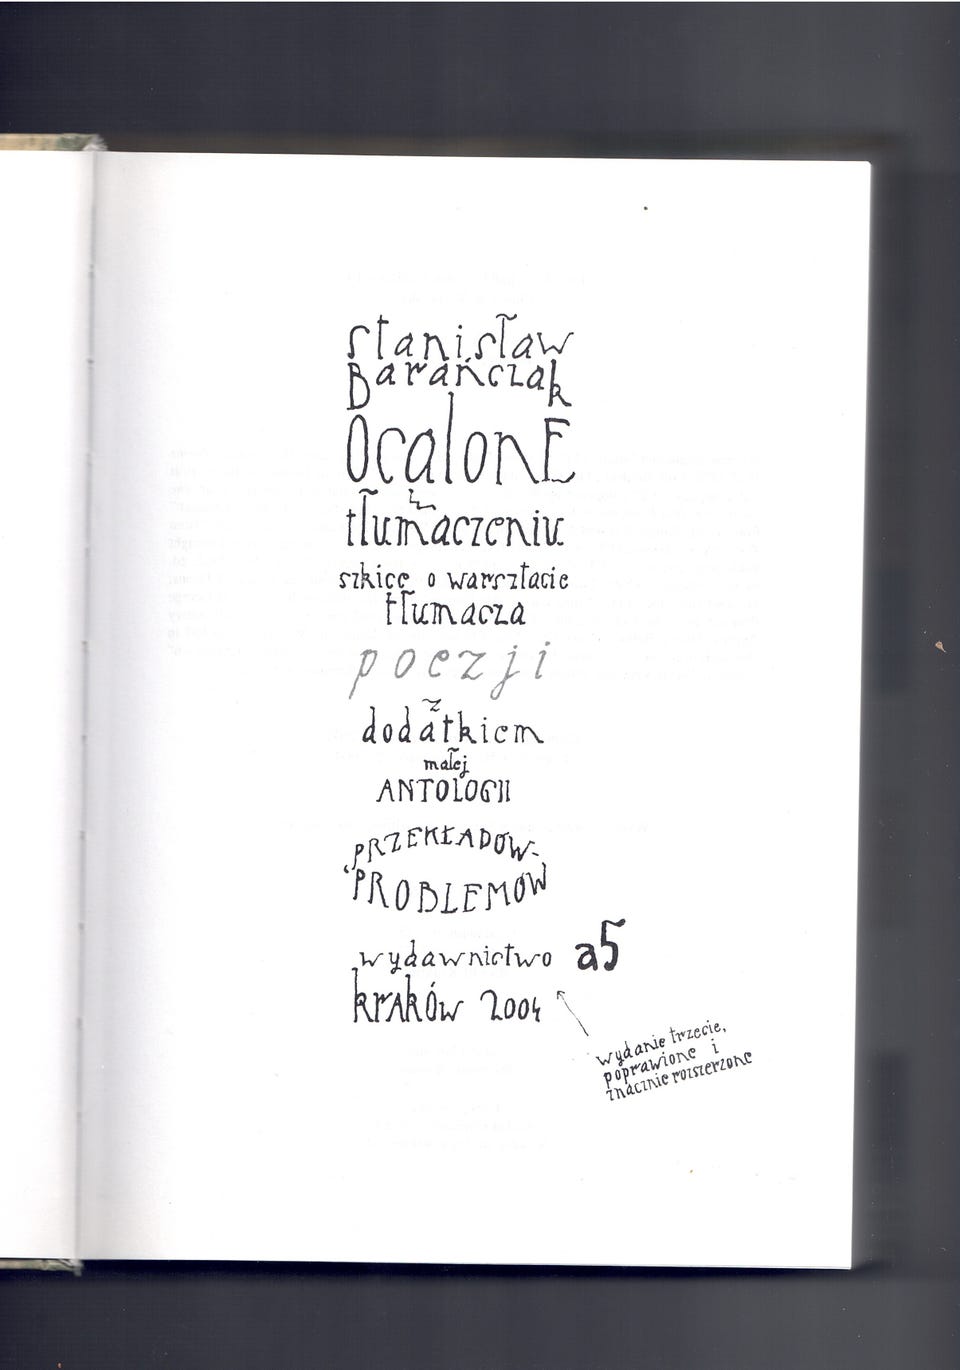 Stanisław
Barańczak
OcalonE
w
tłumaczeniu
szkice o warsztacie
tłumacza
poezji
z
dodatkiem
małej
ANTOLOGII
PRZEKŁADÓW-
PROBLEMÓW
wydawnictwo a5
kraków 2004
wydanie trzecie,
poprawione i
znacznie rozszerzone